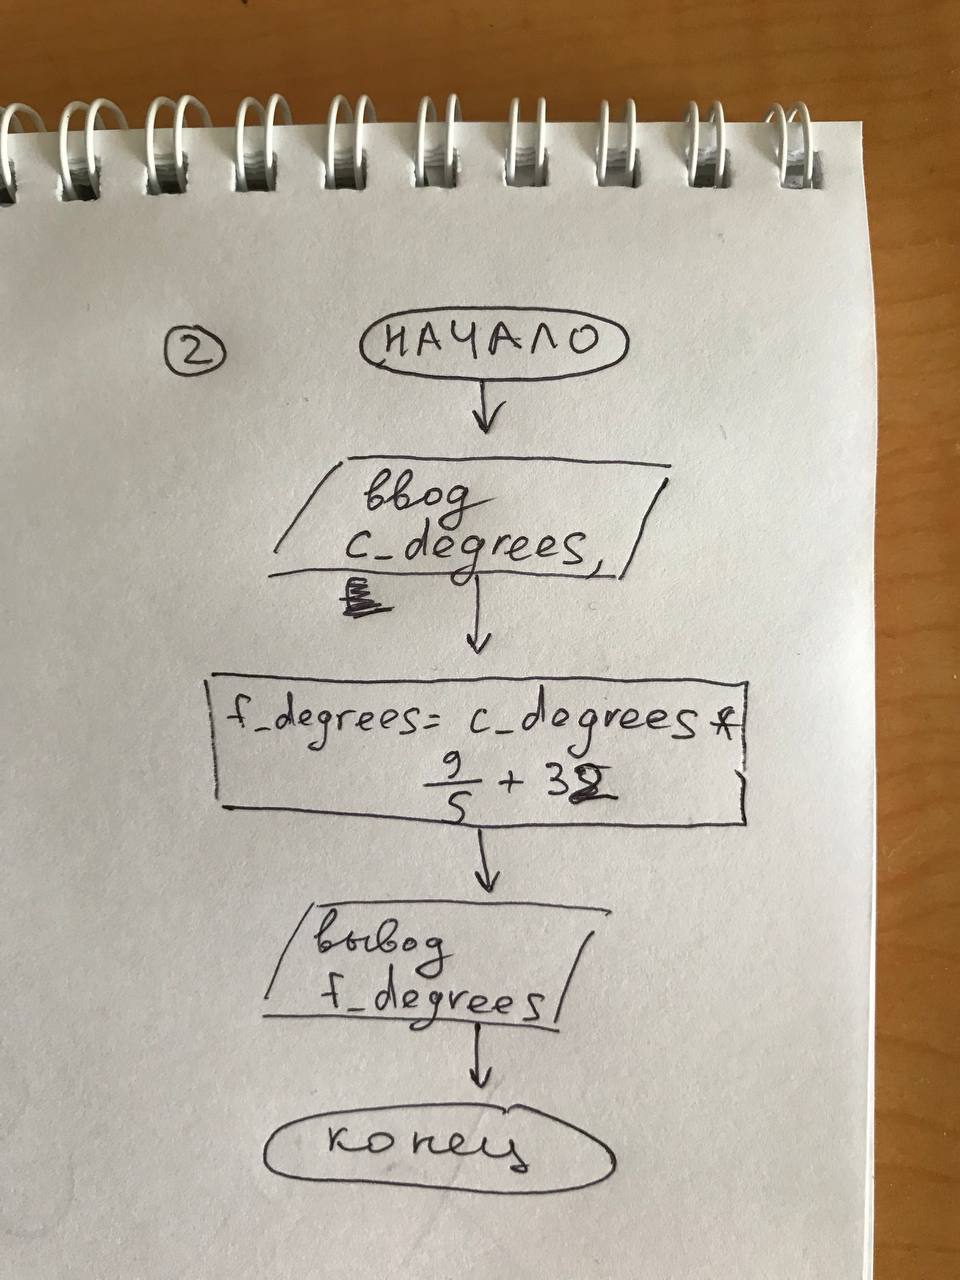 2
НАЧАЛО
ввод
c_degrees,
f_degrees = c_degrees *
9/5 + 32
вывод
f_degrees
конец